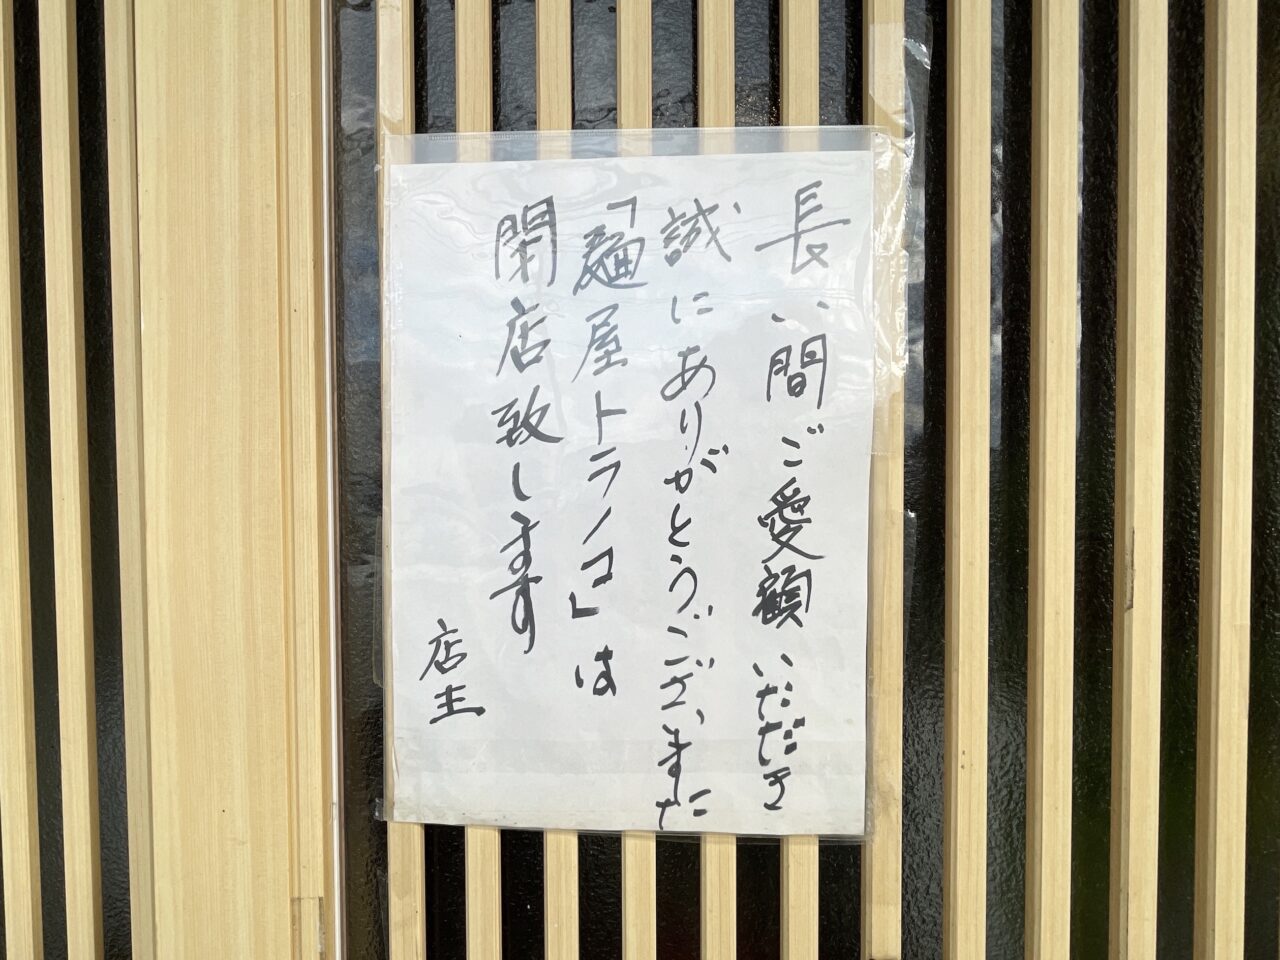 長い間ご愛顧いただき
誠にありがとうございました
「麺屋トラノコ」は
閉店致します
店主